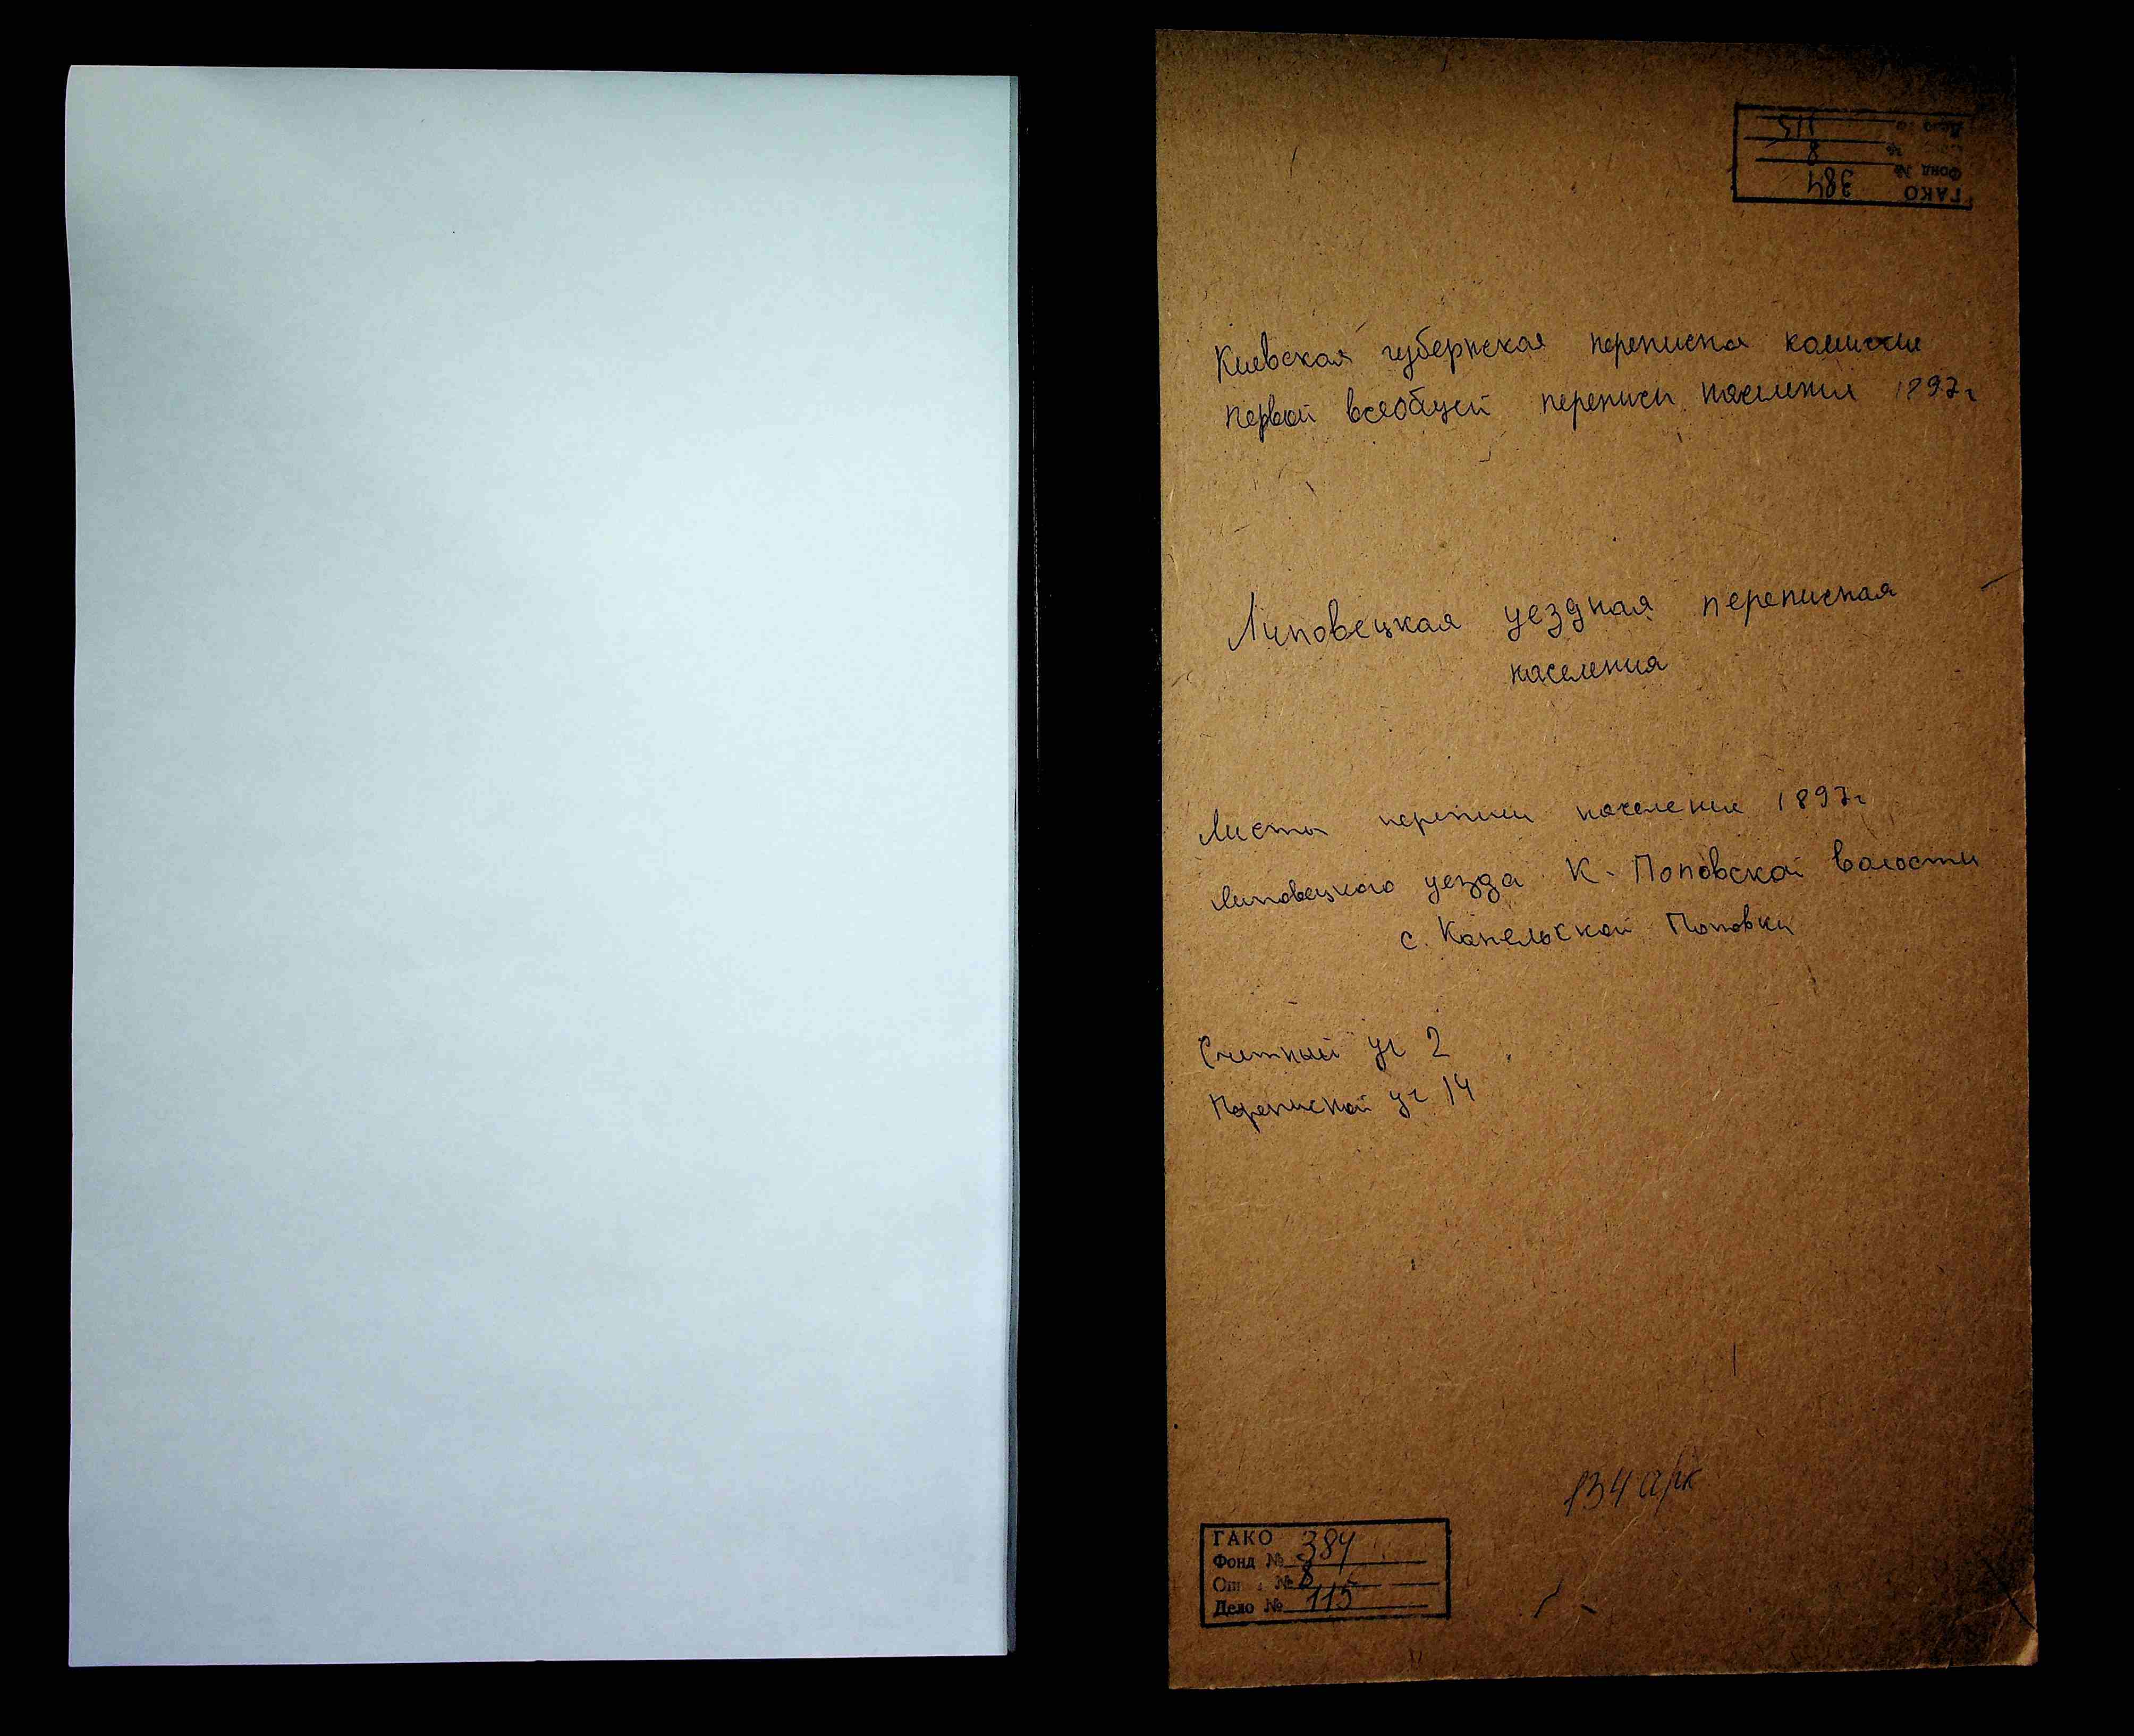 ГАКО
Фонд № 384
8
Дело № 115
Киевская губернская переписная комиссии
первой всеобщей переписи населения 1897г
Липовецкая уездная переписная
населения
Листы переписи населения 1897г
Липовецкого уезда К. Поповской волости
с. Канельской Поповки
Счетный уч 2
Переписной уч 14
134 арк
ГАКО
Фонд № 384
Оп № 8
Дело № 115